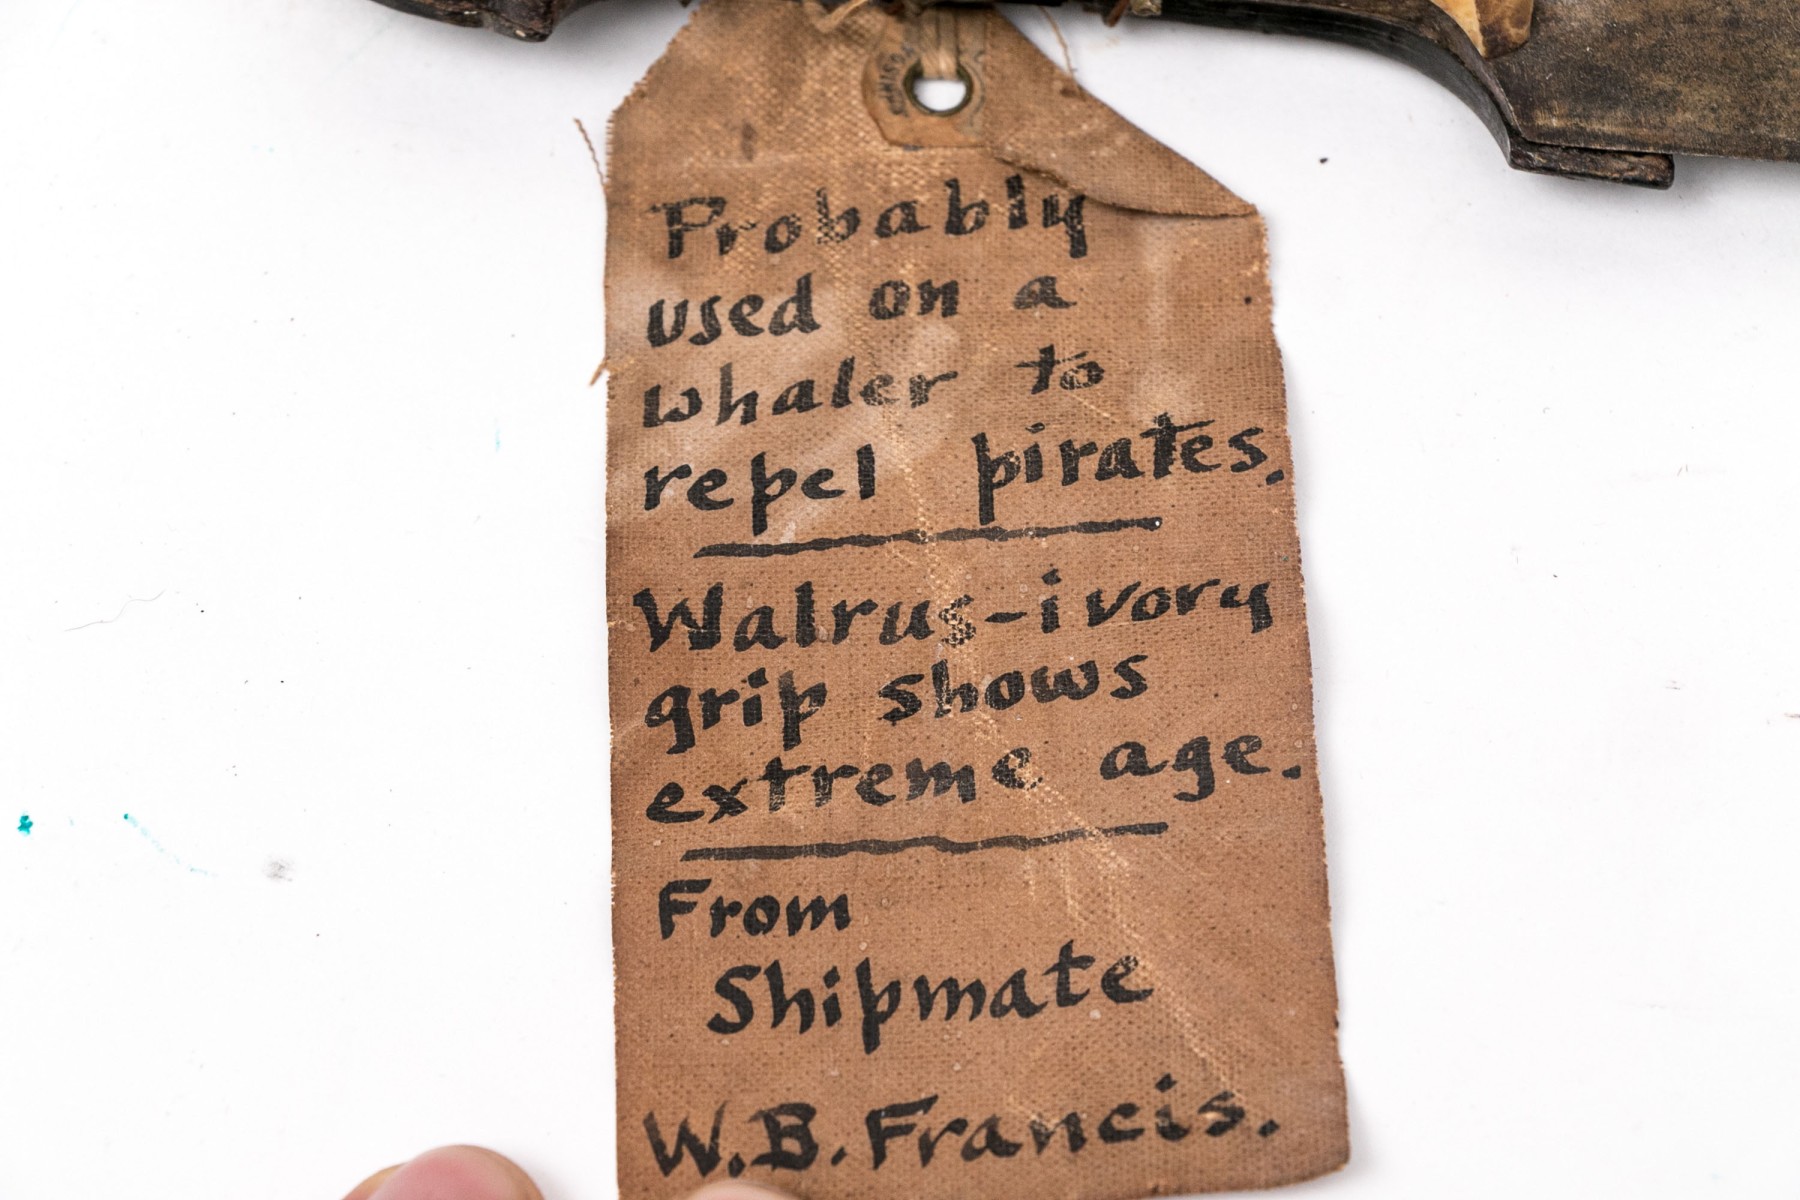 Probably
used on a
whaler to
repel pirates.
Walrus-ivory
grip shows
extreme age.
From
Shipmate
W.B. Francis.